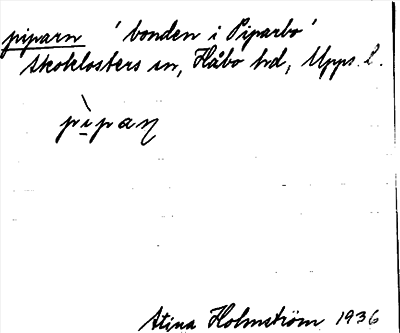 piparn 'bonden i Piparbo'
Skoklosters sn, Håbo hd, Upps. l.
pìpaɳ
Stina Holmström 1936